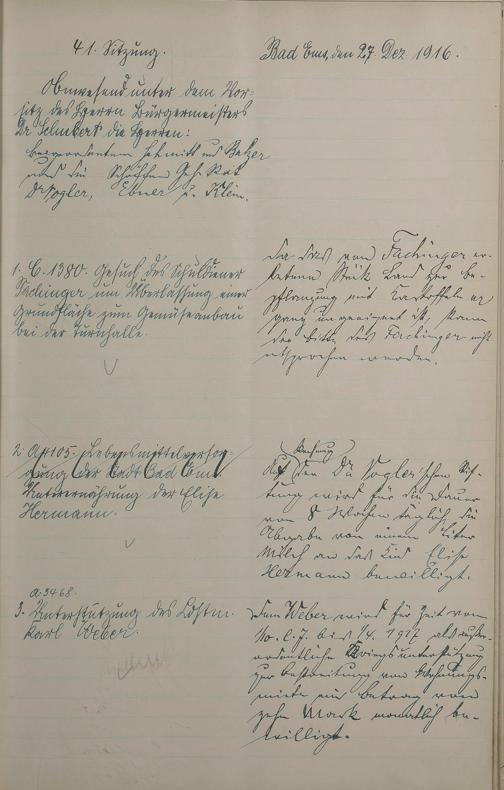 41. Sitzung.
Bad Ems, den 27. Dez 1916.
Anwesend unter dem Vor-
sitz des Herrn Bürgermeisters
Dr Schubert die Herren:
Schmitt und Balzer
und die Schöffen Geh. Rat
Dr Vogler, Ebner u. Klein.
1. C. 1380. Gesuch des Schuldiener
Fachinger um Überlassung einer
Grundfläche zum Gemüseanbau
bei der Turnhalle.
Da das von Fachinger er-
betene Stück Land zur Be-
pflanzung mit Kartoffeln
ganz ungeeignet ist, kann
der Bitte des Fachinger nicht
entsprochen werden.
2. A 4105. Lebensmittelversor-
gung der Stadt Bad Ems
der Elise
Hermann.
Auf den Dr Vogler'schen
wird für die Dauer
von 8 Wochen täglich die
Abgabe von einem Liter
Milch an das Kind Elise
Hermann bewilligt.
a. 3468.
3. Unterstützung des Ldstm.
Karl Weber.
Dem Weber wird für Zeit vom
bis 1/4. 1917 als außer-
ordentliche Kriegsunterstützung
zur Bestreitung von Wohnungs-
miete ein Betrag von
zehn Mark monatlich be-
willigt.